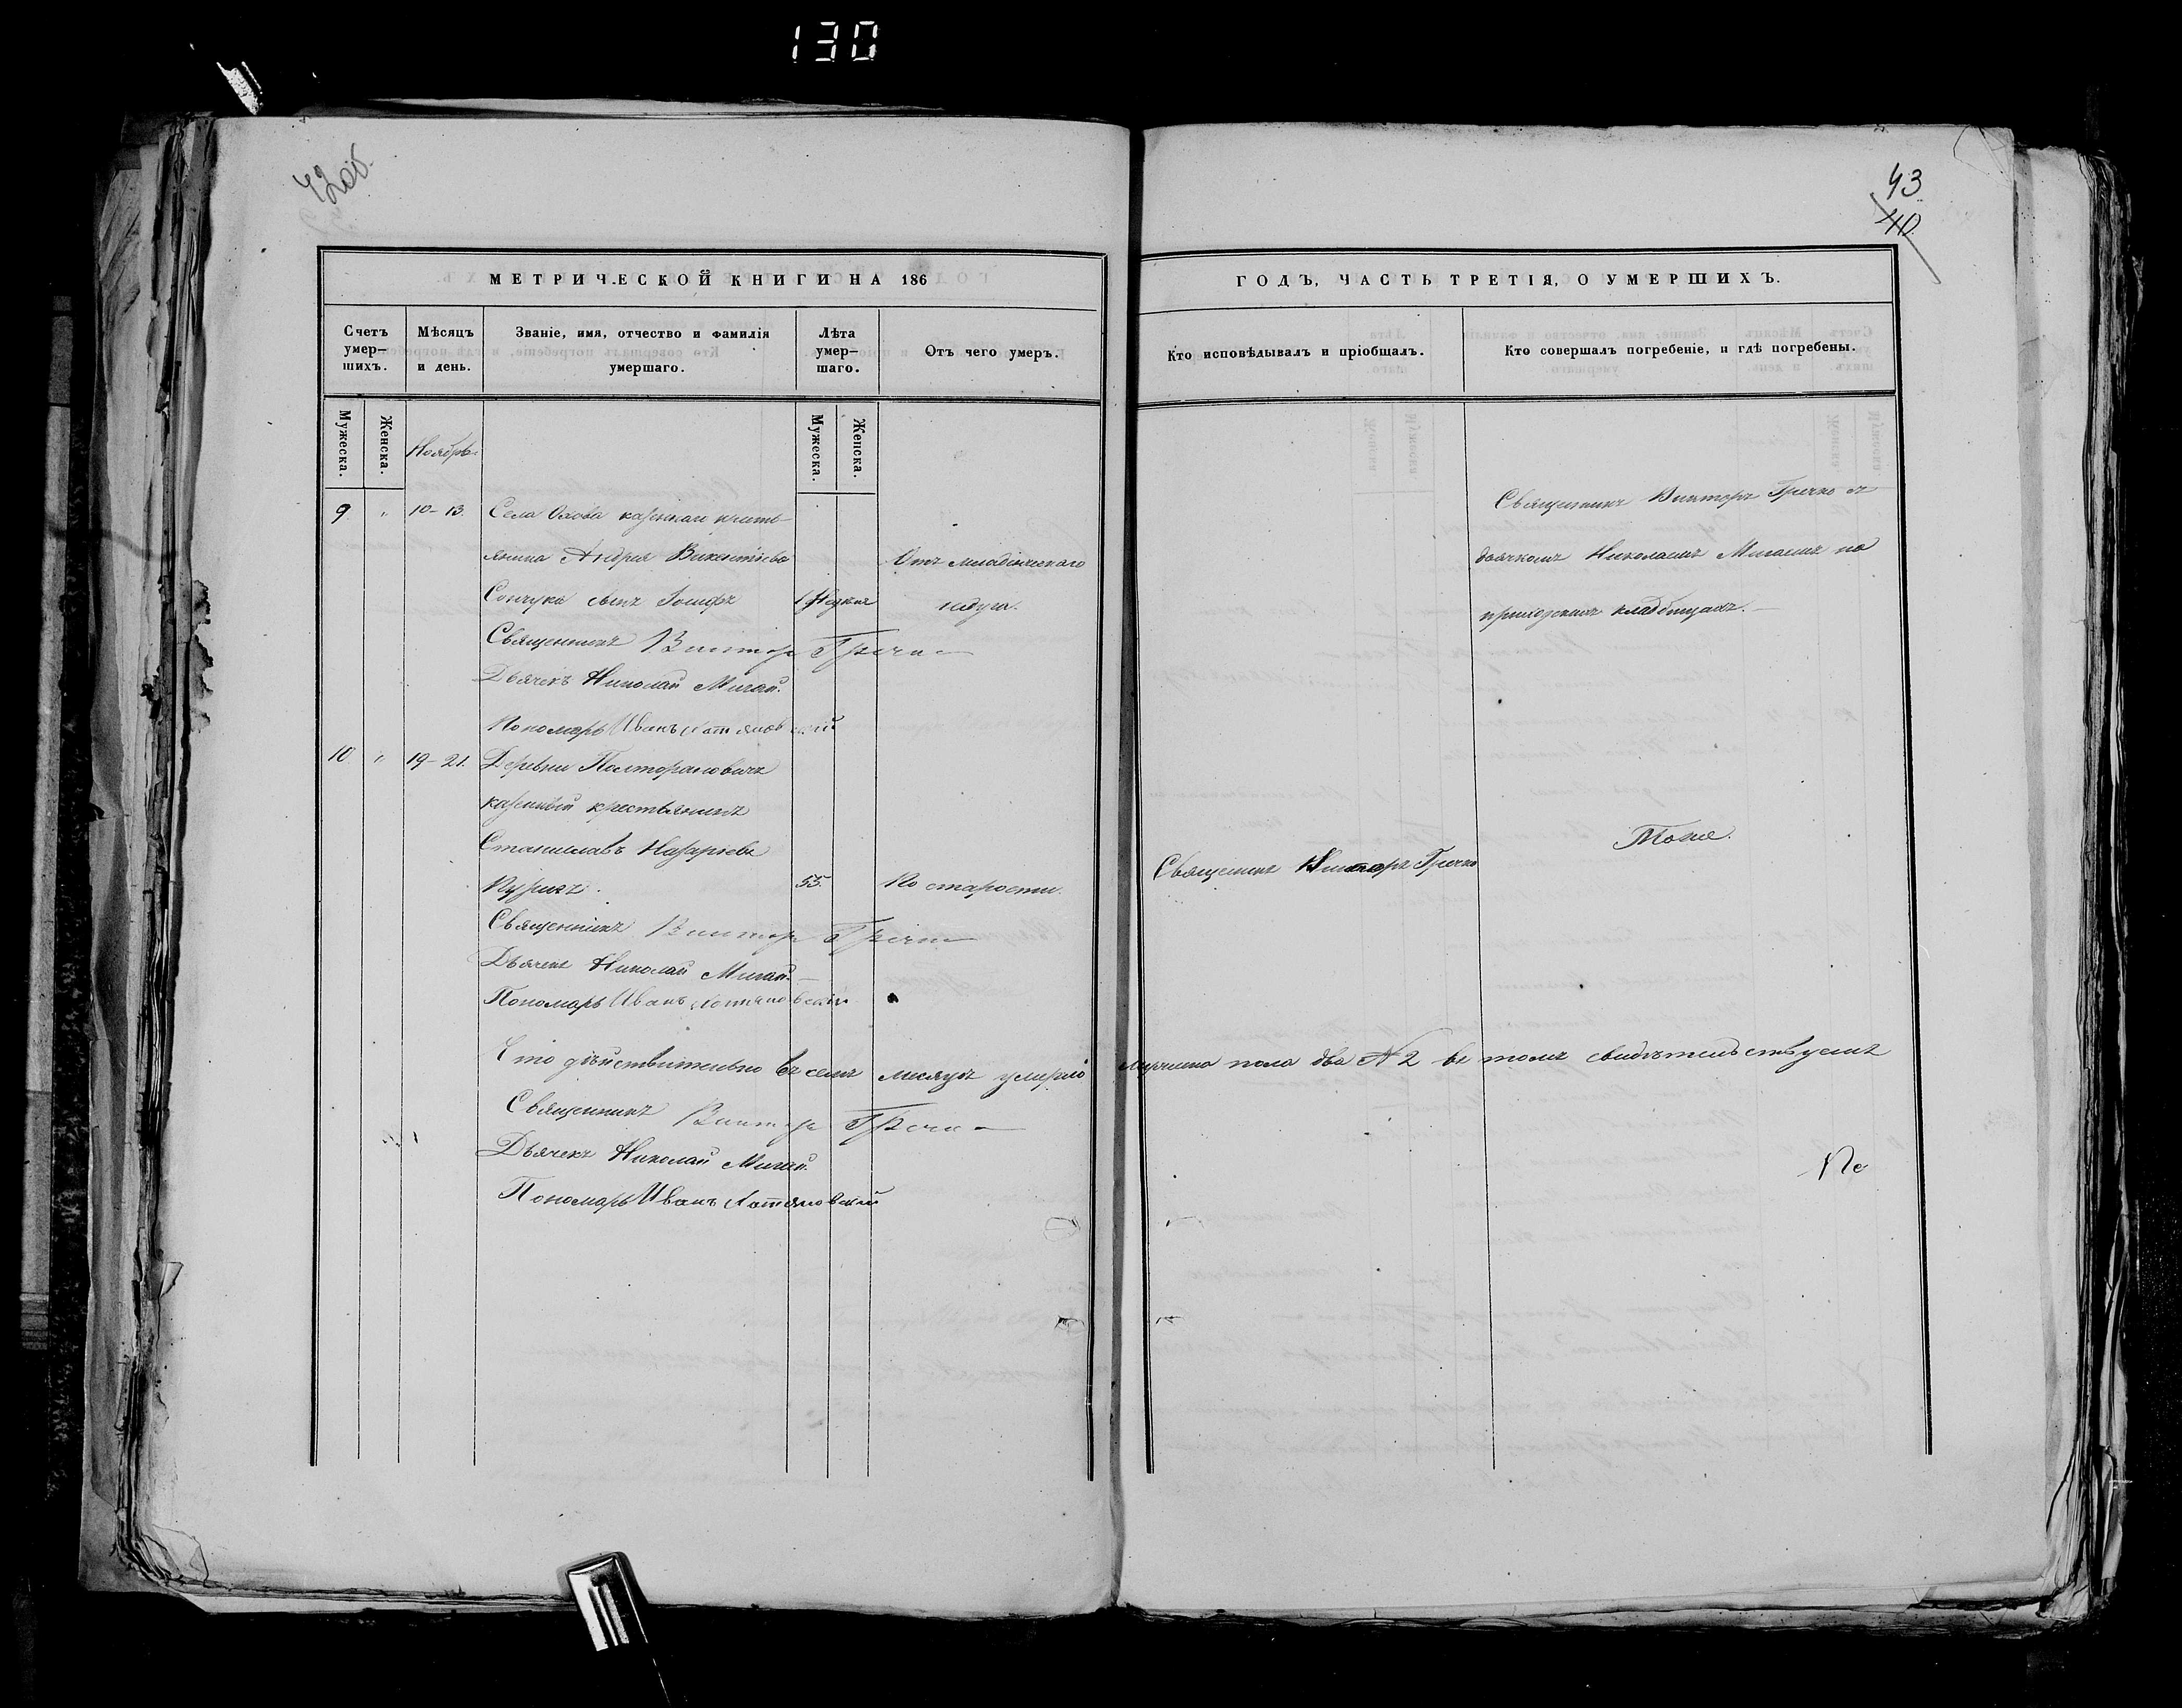 130
42об.
43
40
МЕТРИЧЕСКОЙ КНИГИ НА 186
ГОДЪ, ЧАСТЬ ТРЕТІЯ, О УМЕРШИХЪ.
Счетъ умер-шихъ.
Мѣсяцъ и день.
Званіе, имя, отчество и фамилія умершаго.
Лѣта умер-шаго.
Отъ чего умеръ.
Кто исповѣдывалъ и пріобщалъ.
Кто совершалъ погребеніе, и гдѣ погребены.
Мужеска.
Женска.
Мужеска.
Женска.
Ноябрь
9 " 10-13. Села Охова казеннаго кресть-
янина Андрея Викентіева
сынъ Іосифъ
Отъ младенческаго
недуга.
Священникъ Викторъ Гречко съ
дьячкомъ Николаемъ Мигаемъ на
приходскомъ кладбищѣ.
Священникъ Викторъ Гречко
Дьячекъ Николай Мигай.
Пономарь Иванъ
10 " 19-21. Деревни Полторановичъ
казенный крестьянинъ
Станиславъ Назаріевъ
55. По старости.
Священникъ Викторъ Гречко
Тоже.
Священникъ Викторъ Гречко
Дьячекъ Николай Мигай.
Пономарь Иванъ
Что дѣйствительно въ семъ месяцѣ умерло мужеска пола два № 2 въ томъ свидѣтельствуемъ
Священникъ Викторъ Гречко
Дьячекъ Николай Мигай.
Пономарь Иванъ
По